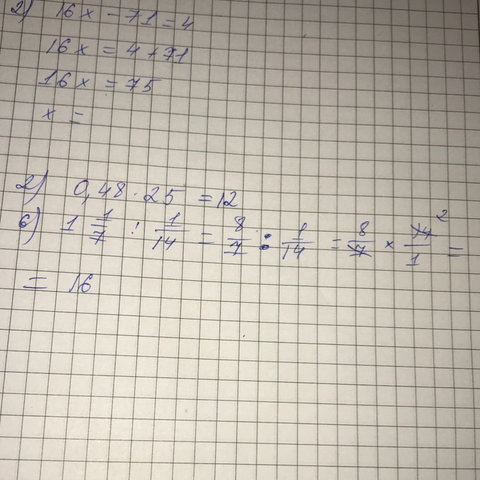 2) 16x - 71 = 4
16x = 4 + 71
16x = 75
x =
2) 0,48 · 25 = 12
6) 1 1/7 : 1/14 = 8/7 : 1/14 = 8/7 × 14/1 2 =
= 16